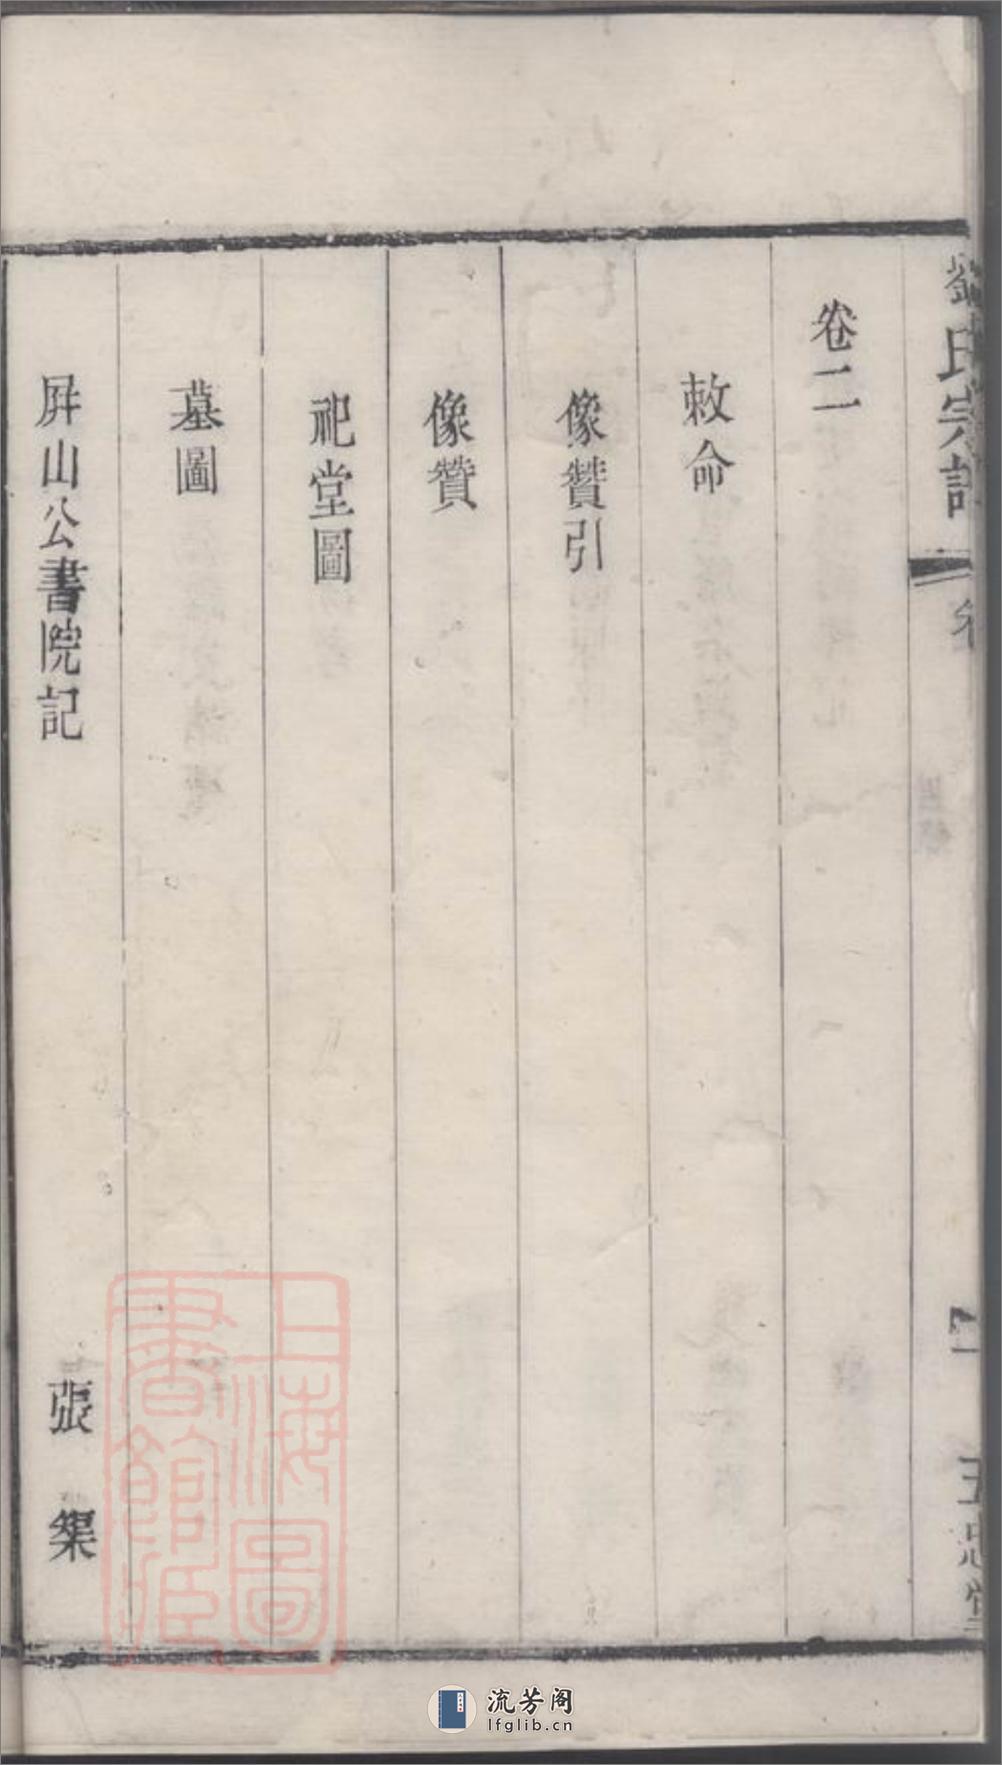 劉氏宗譜
卷二
敕命
像贊引
像贊
祀堂圖
墓圖
屏山公書院記 張榘
五忠堂
上海圖書館藏
流芳阁
lfglib.cn